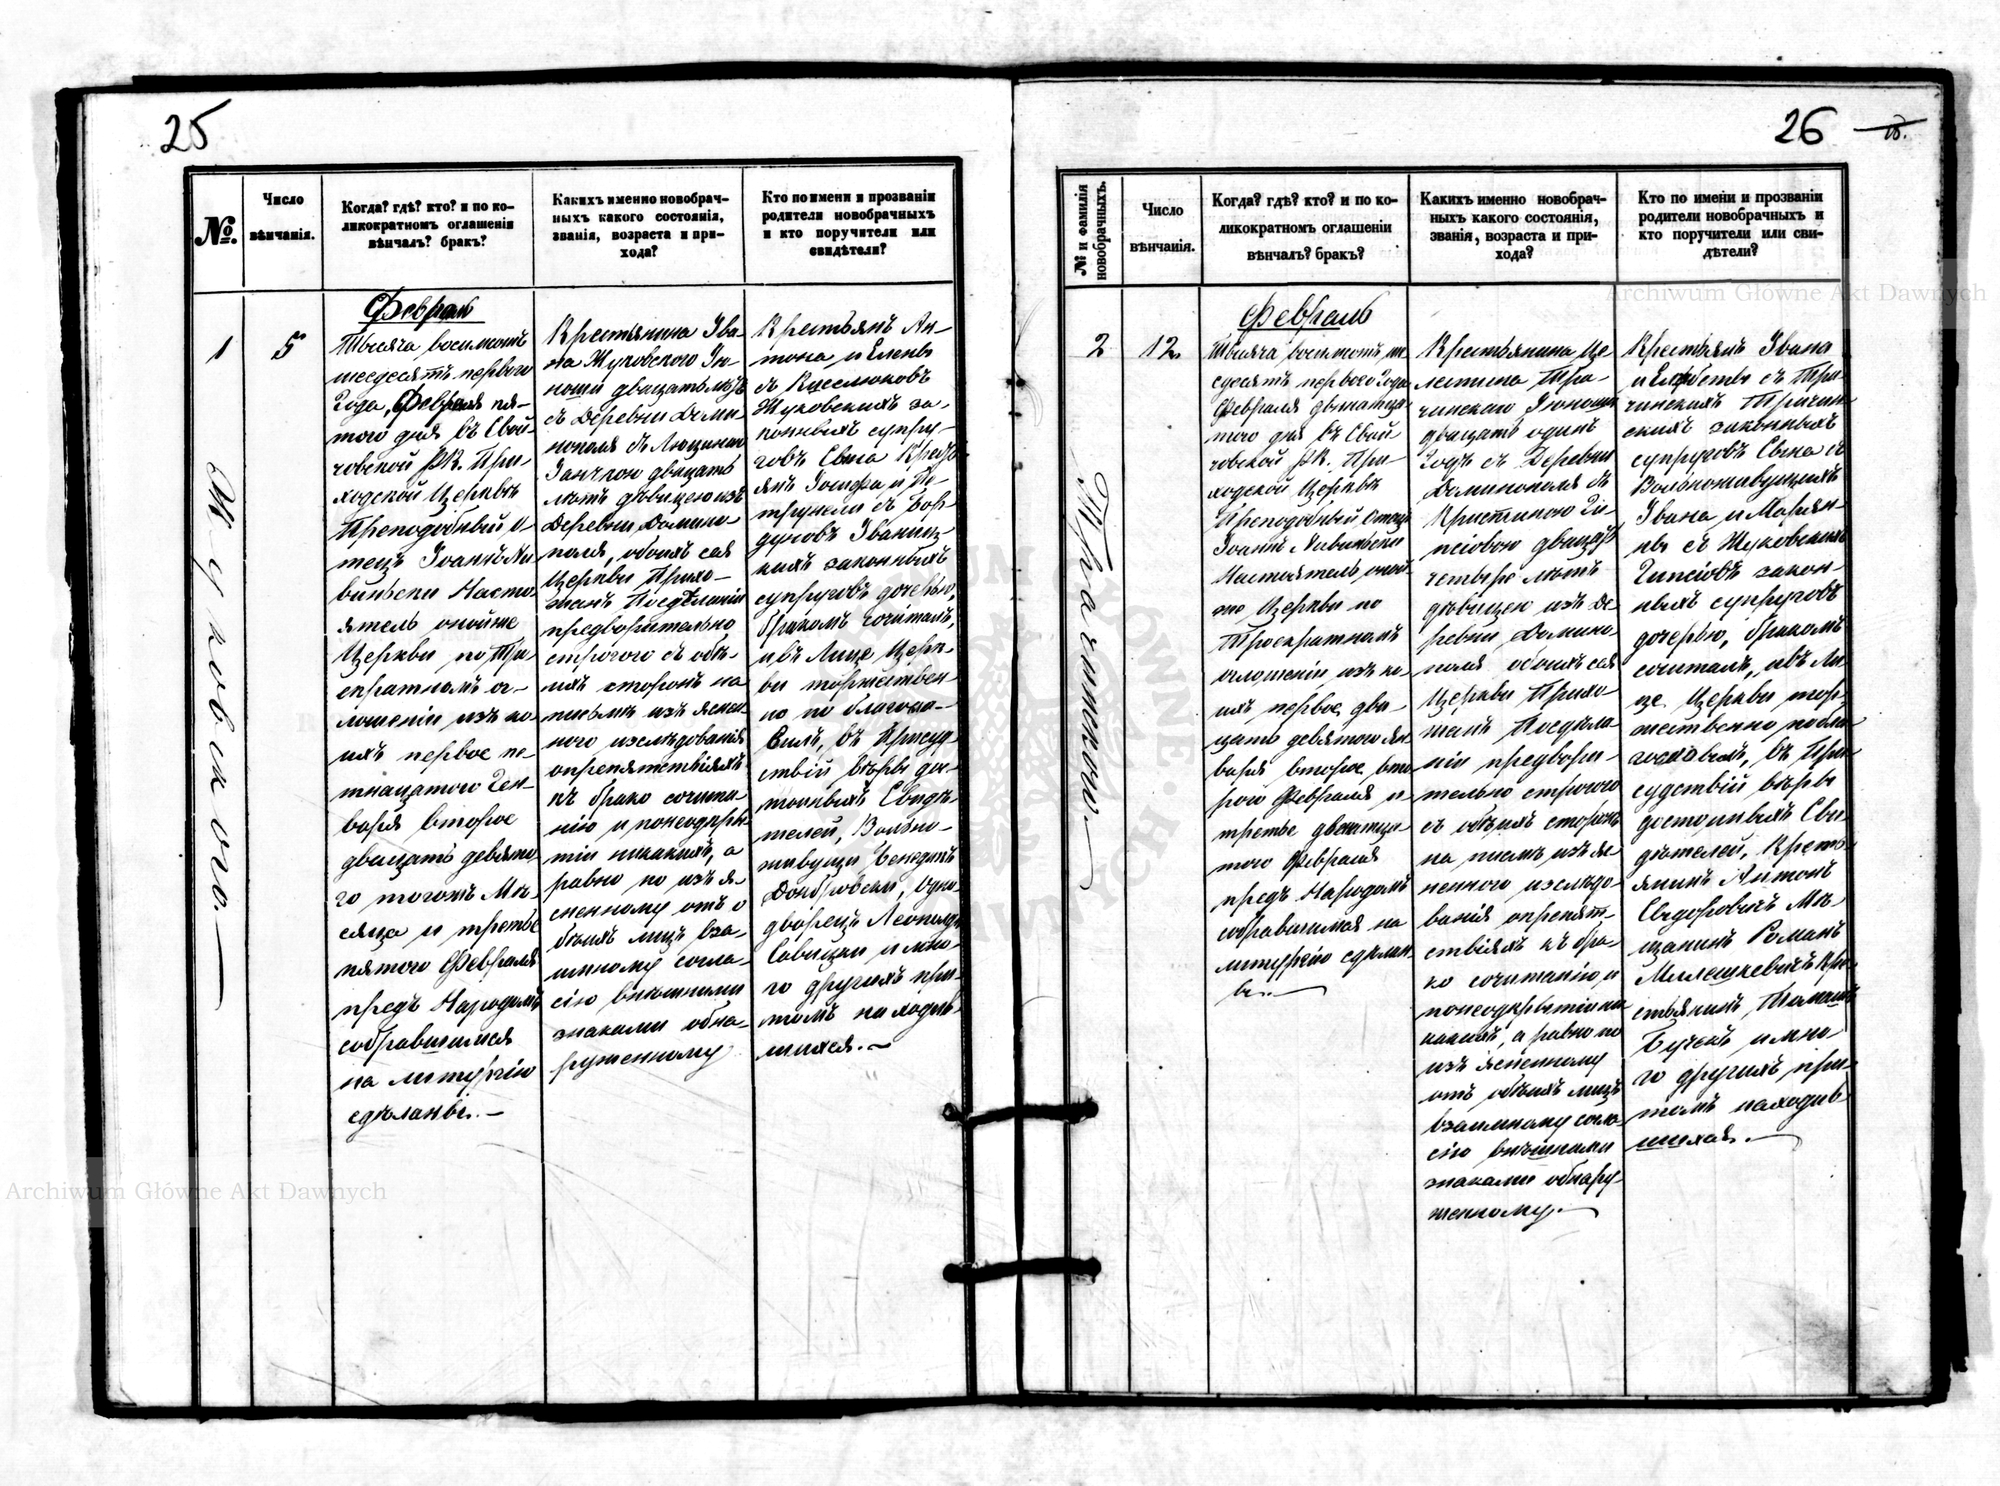 25
№.
Число
вѣнчанія.
Когда? гдѣ? кто? и по ко-
ликократномъ оглашеніи
вѣнчалъ? бракъ?
Какихъ именно новобрач-
ныхъ какого состоянія,
званія, возраста и при-
хода?
Кто по имени и прозваніи
родители новобрачныхъ
и кто поручители или
свидѣтели?
1
Жуковскаго.
5
Февраль
Тысяча восимсотъ
шесдесятъ перваго
Года, Февраля пя-
того дня въ Свой-
човской РК. При-
ходской Церквѣ
Преподобный О-
тецъ Іоаннъ
Насто-
ятель онойже
Церкви по Тро-
екратномъ ог-
лошеніи изъ ко-
ихъ первое пе-
тнацатого Ген-
варя второе
двацать девято-
го тогожъ Мѣ-
сяца и третье
пятого Февраля
предъ Народомъ
собравшимся
на литургію
сдѣланы.—
Крестянина Ива-
на Жуковского Ю-
ноши двацатьлѣтъ
съ Деревни Доми-
нополя съ Люциною
двацать
лѣтъ дѣвицею изъ
Деревни Домино-
поля, обоихъ сея
Церкви Прихо-
жанъ Посдѣланіи
предворительно
строгого съ обѣ-
ихъ сторонъ на
письмѣ изъ яснен-
ного изслѣдованія
опрепятствіяхъ
къ брако сочита-
нію и понеодкры-
тіи никакихъ, а
равно по изъ я-
сненному отъ о
боихъ лицъ вза-
имному согла-
сію внѣшними
знаками обна-
руженному
Крестьянъ Ан-
тона и Елены
съ Киселюковъ
Жуковскихъ за-
конныхъ супру-
говъ Сына Крестъ-
янъ Іосифа и Пе-
трунели съ Бор-
дуновъ Іваниц-
кихъ законныхъ
супруговъ дочерью,
бракомъ сочиталъ,
ивъ Лице Церк-
ви торжествен-
но по благосло-
вилъ, въ Присуд-
ствій вѣры до-
стойныхъ Свидѣ-
телей, Вольно-
живущи Бенедикъ
Домбровски, Одно-
дворецъ Леопольдъ
Савицки и мно-
го другихъ при-
томъ находив-
шихся.—
26
№ и фамилія
новобрачныхъ.
Число
вѣнчанія.
Когда? гдѣ? кто? и по ко-
ликократномъ оглашеніи
вѣнчалъ? бракъ?
Какихъ именно новобрач-
ныхъ какого состоянія,
званія, возраста и при-
хода?
Кто по имени и прозваніи
родители новобрачныхъ и
кто поручители или сви-
дѣтели?
2
12
Февраль
Тысяча восимсотъ ше
сдесятъ первого Года
Февраля двенатца
того дня въ Свой-
човской РК. При-
ходской Церквѣ
Преподобный Отецъ
Іоаннъ
Настоятель оной-
же Церкви по
Троекратномъ
оглошеніи изъ ко-
ихъ первое два-
цать девятого Ян-
варя второе вто-
рого Февраля и
третье двенатца-
того Февраля
предъ Народомъ
собравшимся на
литургію сдѣлан-
ы.—
Крестянина Це-
лестина Тра-
чинскаго Юноши
двацать одинъ
Годъ съ Деревни
Доминополя съ
Кристиною Чи-
псіовою двацать
четыре лѣтъ
дѣвицею изъ Де
ревни Домино-
поля обоихъ сея
Церкви Прихо-
жанъ Посдѣла-
ніи предвори-
тельно строгого
съ обѣихъ сторонъ
на писмѣ изъ яс
ненного изслѣдо-
ванія опрепят-
ствіяхъ къ бра-
ко сочитанію и
понеодкрытіи ни
какихъ, а равно по
изъ ясненному
отъ обѣихъ лицъ
взаимному согла-
сію внѣшними
знаками обнару-
женному.—
Крестьянъ Ивана
и Елзбеты съ Тра-
чинскихъ Трачин-
скихъ законныхъ
супруговъ Сына съ
Вольноживущихъ
Івана и Марян-
ны съ Жуковскихъ
Чипсіовъ закон-
ныхъ супруговъ
дочерью, бракомъ
сочиталъ, ивъ Ли-
це Церкви тор-
жественно побла-
гославилъ, въ При-
судствій вѣры
достойныхъ Сви-
дѣтелей, Кресть-
янинъ Антонъ
Сидоровичъ Мѣ-
щанинъ Романъ
Милешкевичъ Кре-
стьянинъ, Томашъ
Бучекъ и мно-
го другихъ при-
томъ находив-
шихся.—
Archiwum Główne Akt Dawnych
Archiwum Główne Akt Dawnych